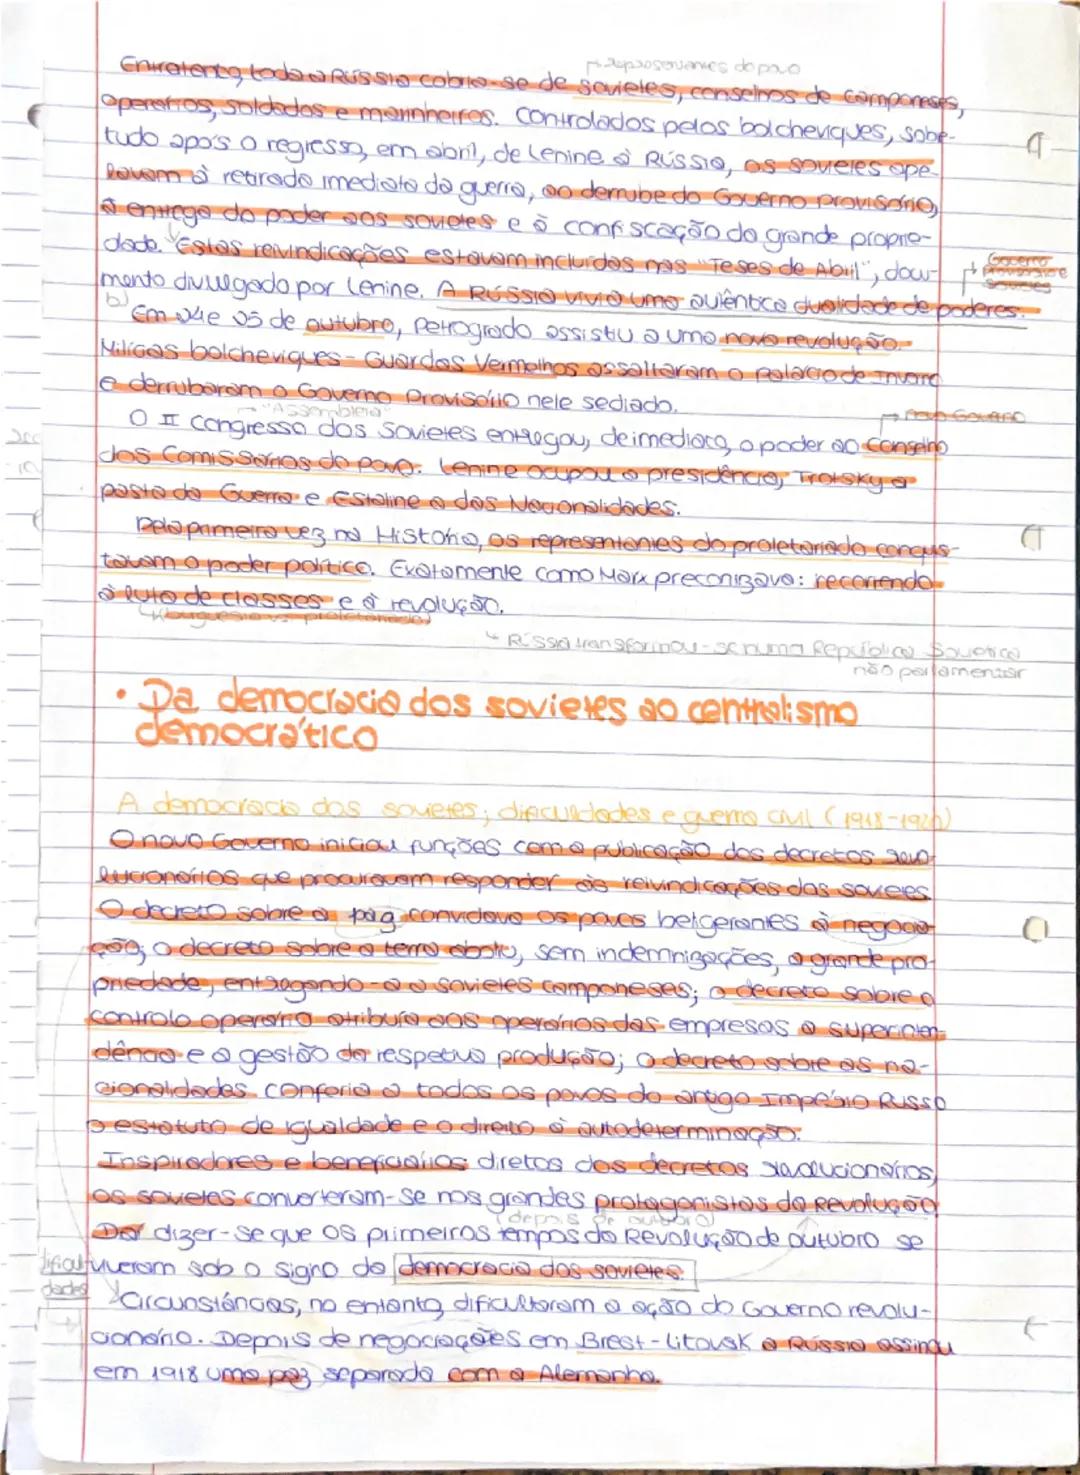 → representantes do povo
Entretanto, toda a Rússia cobriu-se de sovietes, conselhos de camponeses,
operários, soldados e marinheiros. Controlados pelos bolcheviques, sobre-
tudo após o regresso, em abril, de Lenine à Rússia, os sovietes ape-
lavam à retirada imediata da guerra, ao derrube do Governo provisório,
à entrega do poder aos sovietes e à confiscação da grande proprie-
dade. Estas reivindicações estavam incluídas nas "Teses de Abril", docu-
→ Governo Provisório e sovietes
mento divulgado por Lenine. A Rússia vivia uma autêntica dualidade de poderes.
b)
Em 24 e 25 de outubro, Petrogrado assistiu a uma nova revolução.
Milícias bolcheviques - Guardas Vermelhos assaltaram o Palácio de Inverno
e derrubaram o Governo Provisório nele sediado.
→ "Assembleia"
→ novo Governo
O II Congresso dos Sovietes entregou, de imediato, o poder ao Conselho
dos Comissários do Povo. Lenine ocupou a presidência, Trotsky a
pasta da Guerra e Estaline a das Nacionalidades.
Pela primeira vez na História, os representantes do proletariado conquis-
tavam o poder político. Exatamente como Marx preconizava: recorrendo
à luta de classes e à revolução.
↳ (burguesia vs proletariado)
↳ Rússia transformou-se numa República Soviética
não parlamentar
• Da democracia dos sovietes ao centralismo
democrático
A democracia dos sovietes; dificuldades e guerra civil (1918-1920)
O novo Governo iniciou funções com a publicação dos decretos revo-
lucionários que procuravam responder às reivindicações dos sovietes.
O decreto sobre a paz convidava os povos beligerantes à negocia-
ção; o decreto sobre a terra aboliu, sem indemnizações, a grande pro-
priedade, entregando-a a sovietes camponeses; o decreto sobre o
controlo operário atribuía aos operários das empresas a superinten-
dência e a gestão da respetiva produção; o decreto sobre as na-
cionalidades conferia a todos os povos do antigo Império Russo
o estatuto de igualdade e o direito à autodeterminação.
Inspiradores e beneficiários diretos dos decretos revolucionários,
os sovietes converteram-se nos grandes protagonistas da Revolução
(depois de outubro)
Daí dizer-se que os primeiros tempos da Revolução de outubro se
viveram sob o signo da democracia dos sovietes.
dificul
dades
Circunstâncias, no entanto, dificultaram a ação do Governo revolu-
cionário. Depois de negociações em Brest-Litovsk a Rússia assinou
em 1918 uma paz separada com a Alemanha.